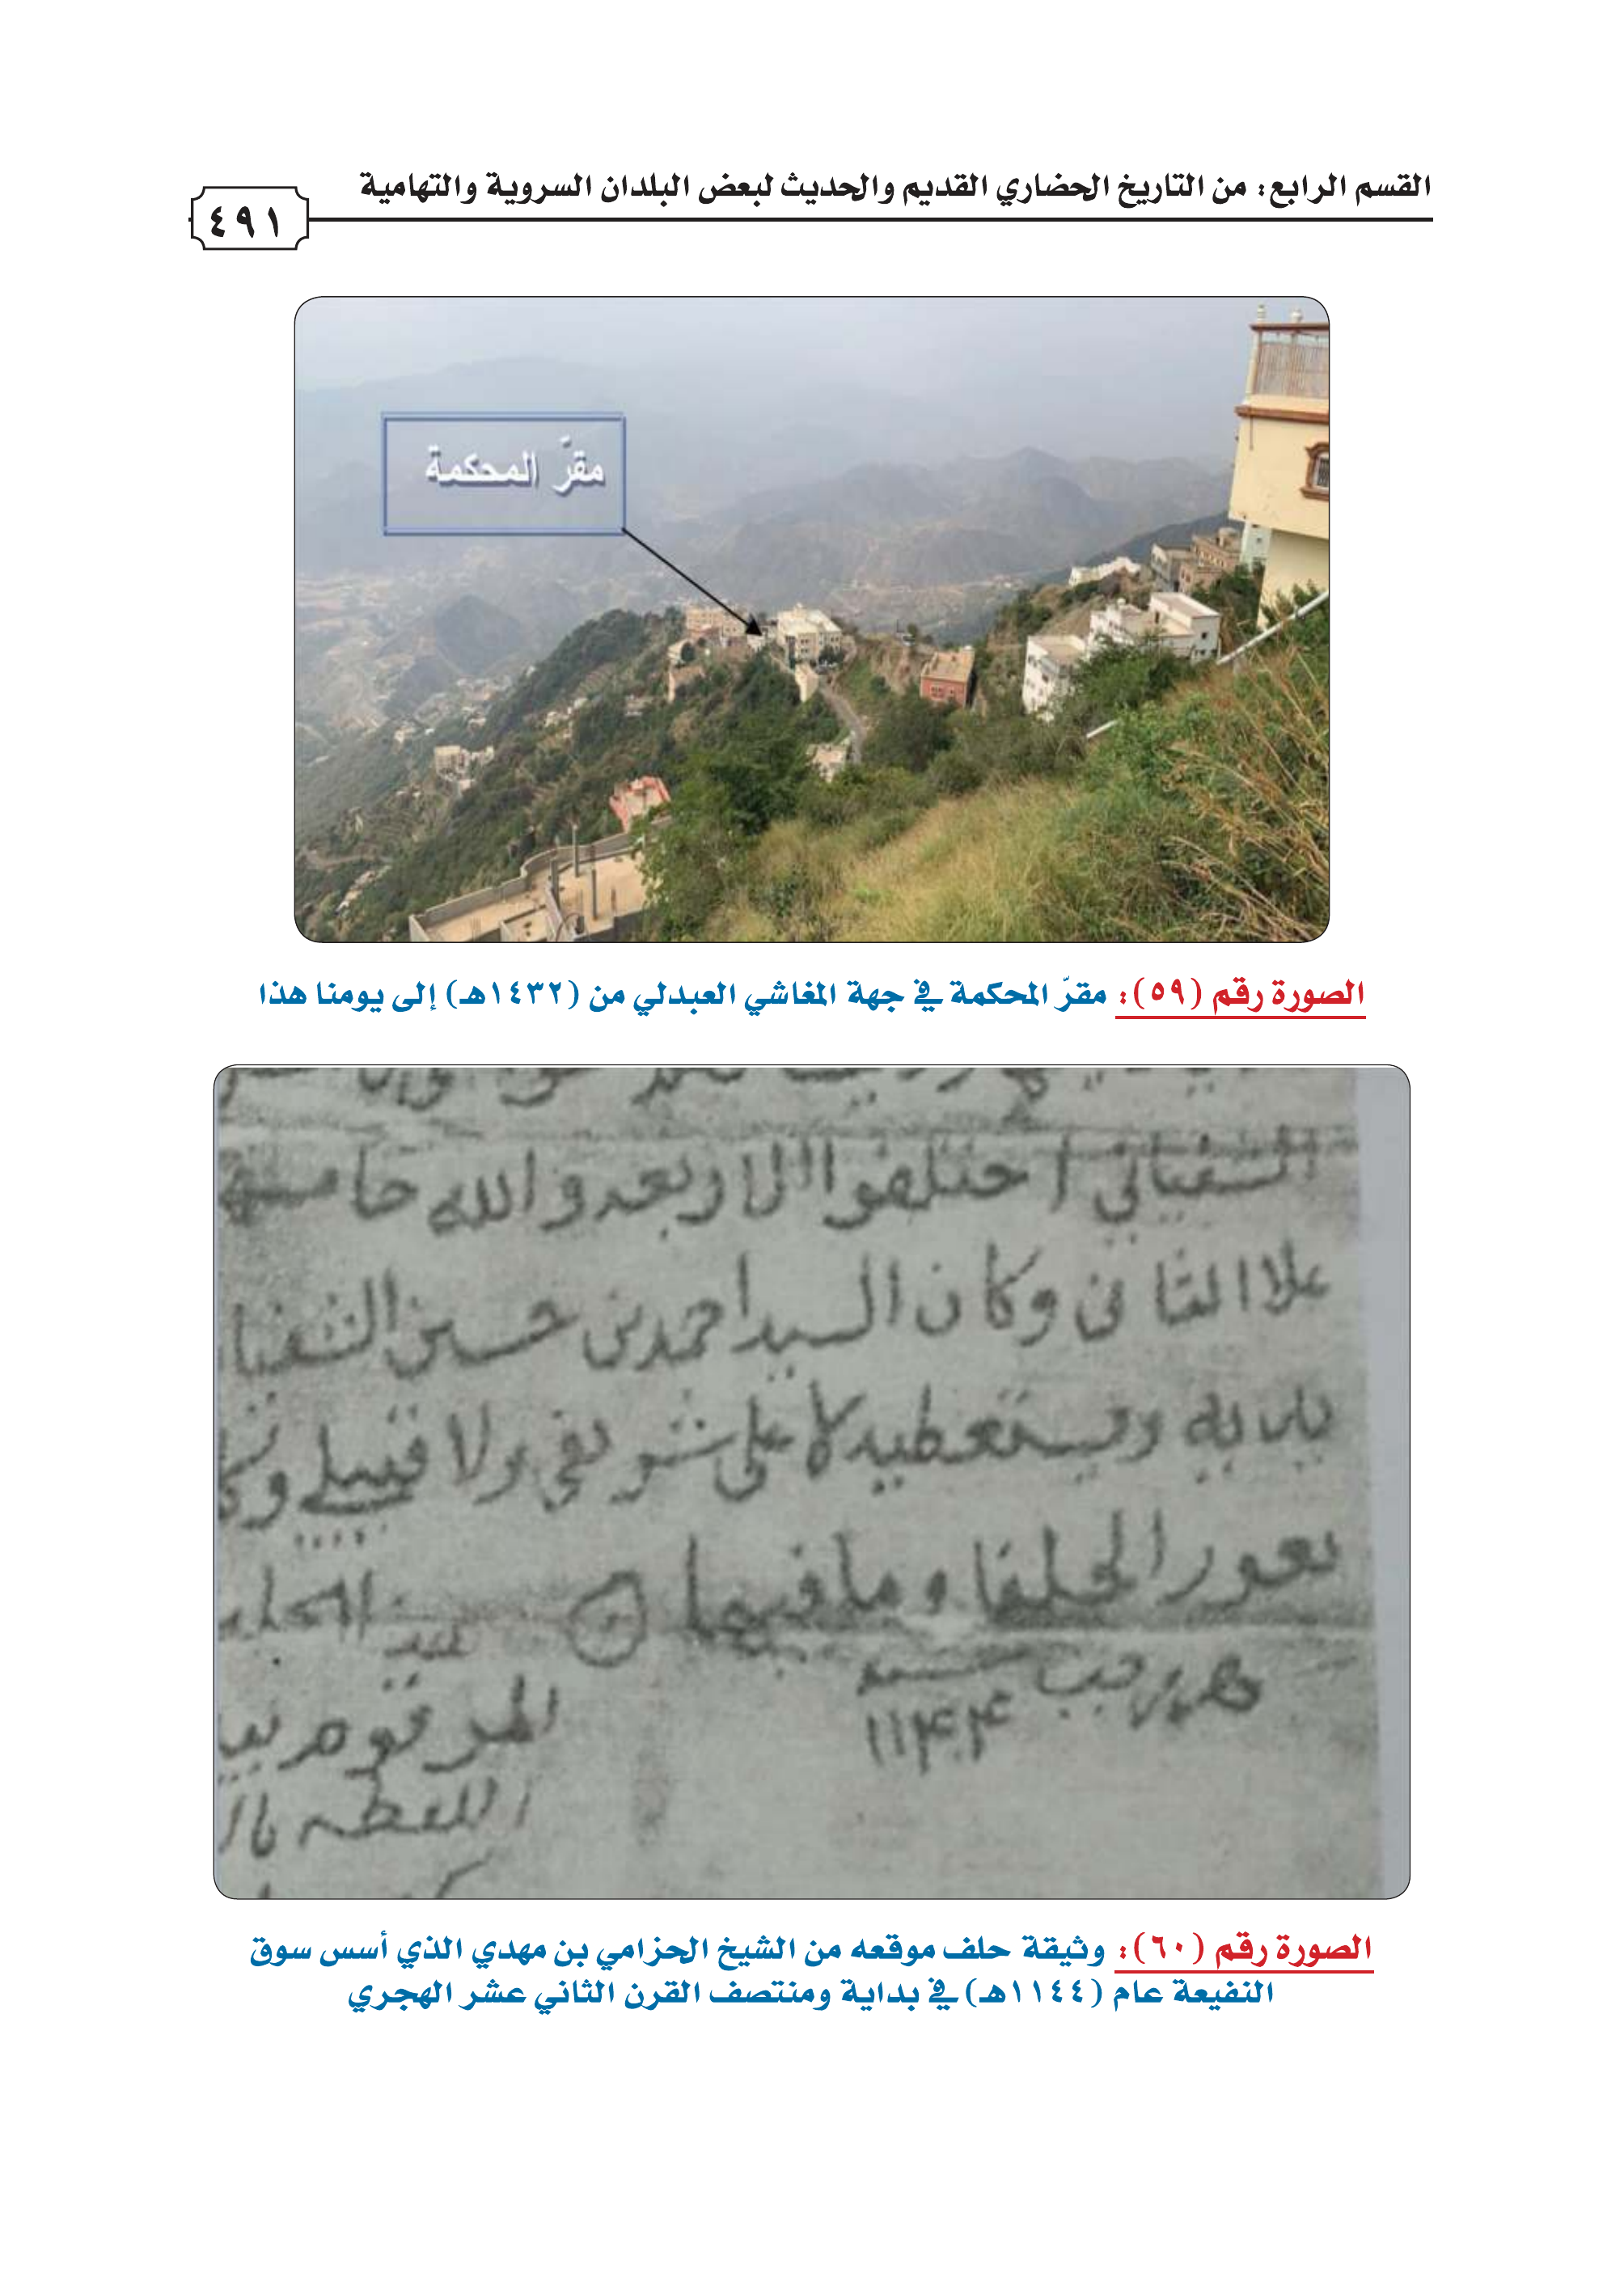 القسم الرابع: من التاريخ الحضاري القديم والحديث لبعض البلدان السروية والتهامية
٤٩١
مقرّ المحكمة
الصورة رقم (٥٩): مقرّ المحكمة في جهة المغاشي العبدلي من (١٤٣٢هـ) إلى يومنا هذا
احتلفوا الاربعه والله
علا الثاني وكان السيد احمد بن حسين
على شريفي ولا قبيلي
الحلفا وما فيها
شهر رجب سنة
١١٤٤
المرقوم
الصورة رقم (٦٠): وثيقة حلف موقعه من الشيخ الحزامي بن مهدي الذي أسس سوق
النفيعة عام (١١٤٤هـ) في بداية ومنتصف القرن الثاني عشر الهجري